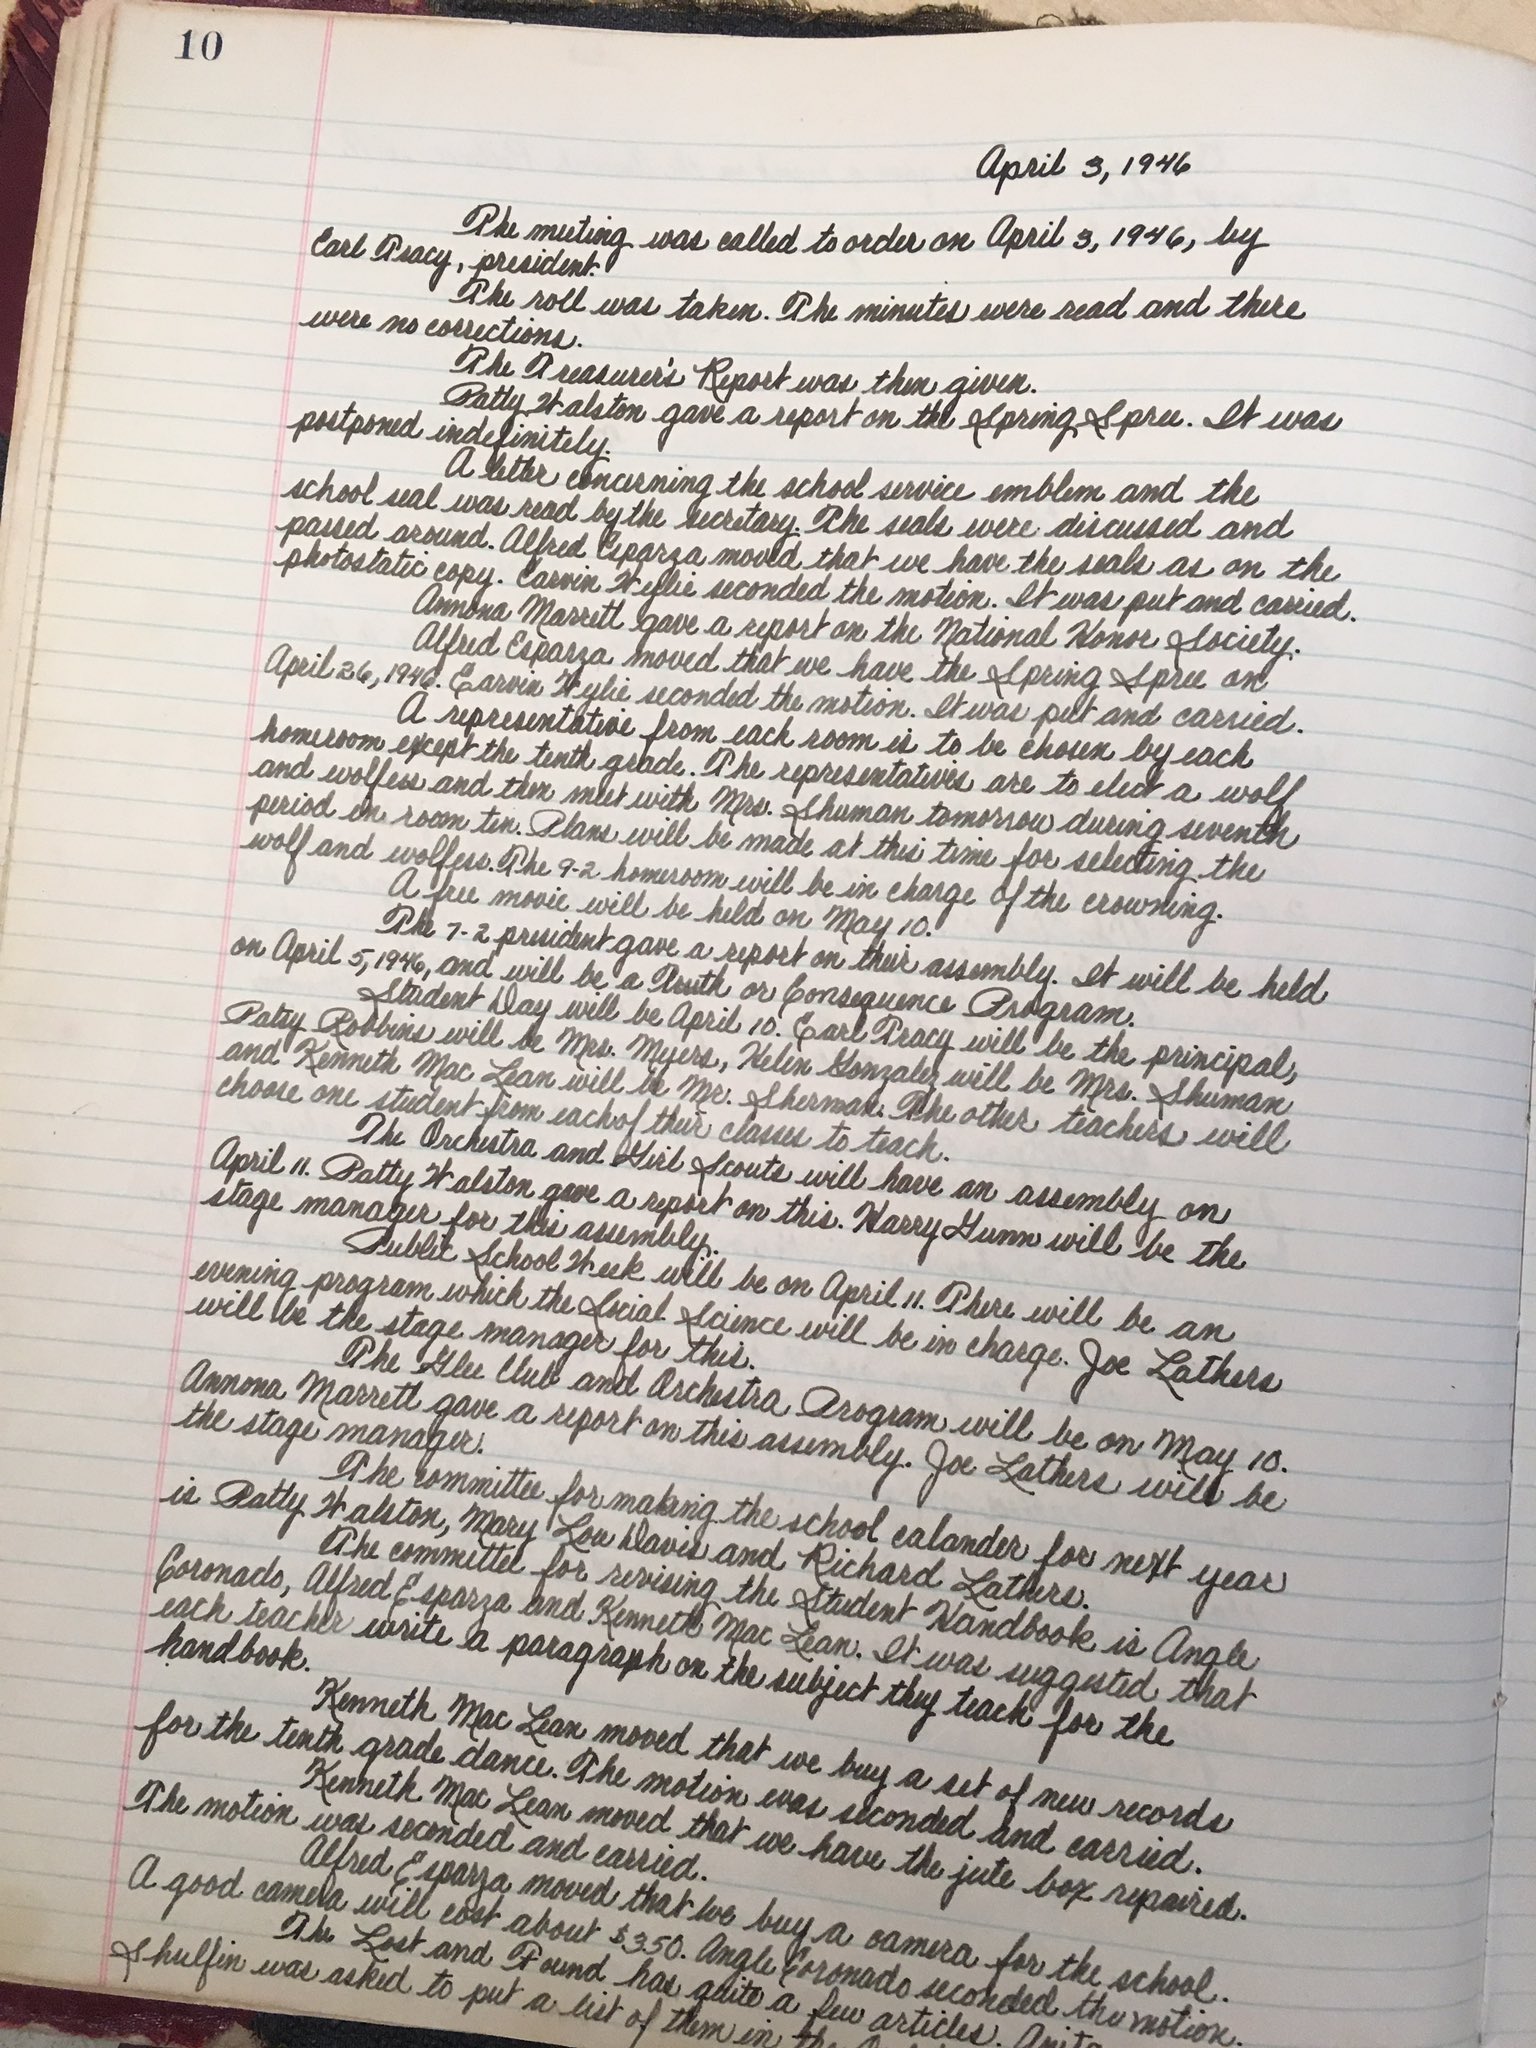 10
April 3, 1946
The meeting was called to order on April 3, 1946, by
Earl Tracy, president.
The roll was taken. The minutes were read and there
were no corrections.
The Treasurer's Report was then given.
Patty Walston gave a report on the Spring Spree. It was
postponed indefinitely.
A letter concerning the school service emblem and the
school seal was read by the secretary. The seals were discussed and
passed around. Alfred Esparza moved that we have the seals as on the
photostatic copy. Earvin Wylie seconded the motion. It was put and carried.
Annona Marrett gave a report on the National Honor Society.
Alfred Esparza moved that we have the Spring Spree on
April 26, 1946. Earvin Wylie seconded the motion. It was put and carried.
A representative from each room is to be chosen by each
homeroom except the tenth grade. The representatives are to elect a wolf
and wolfess and then meet with Mrs. Shuman tomorrow during seventh
period in room ten. Plans will be made at this time for selecting the
wolf and wolfess. The 9-2 homeroom will be in charge of the crowning.
A free movie will be held on May 10.
The 7-2 president gave a report on their assembly. It will be held
on April 5, 1946, and will be a Truth or Consequence Program.
Student Day will be April 10. Earl Tracy will be the principal,
Patsy Robbins will be Mrs. Myers, Helen Gonzalez will be Mrs. Shuman
and Kenneth Mac Lean will be Mr. Sherman. The other teachers will
choose one student from each of their classes to teach.
The Orchestra and Girl Scouts will have an assembly on
April 11. Patty Walston gave a report on this. Harry Gunn will be the
stage manager for this assembly.
Public School Week will be on April 11. There will be an
evening program which the Social Science will be in charge. Joe Lathers
will be the stage manager for this.
The Glee Club and Orchestra Program will be on May 10.
Annona Marrett gave a report on this assembly. Joe Lathers will be
the stage manager.
The committee for making the school calander for next year
is Patty Walston, Mary Lou Davis and Richard Lathers.
The committee for revising the Student Handbook is Angle
Coronado, Alfred Esparza and Kenneth Mac Lean. It was suggested that
each teacher write a paragraph on the subject they teach for the
handbook.
Kenneth Mac Lean moved that we buy a set of new records
for the tenth grade dance. The motion was seconded and carried.
Kenneth Mac Lean moved that we have the jute box repaired.
The motion was seconded and carried.
Alfred Esparza moved that we buy a camera for the school.
A good camera will cost about $350. Angle Coronado seconded the motion.
The Lost and Found has quite a few articles. Anita
Shulfin was asked to put a list of them in the